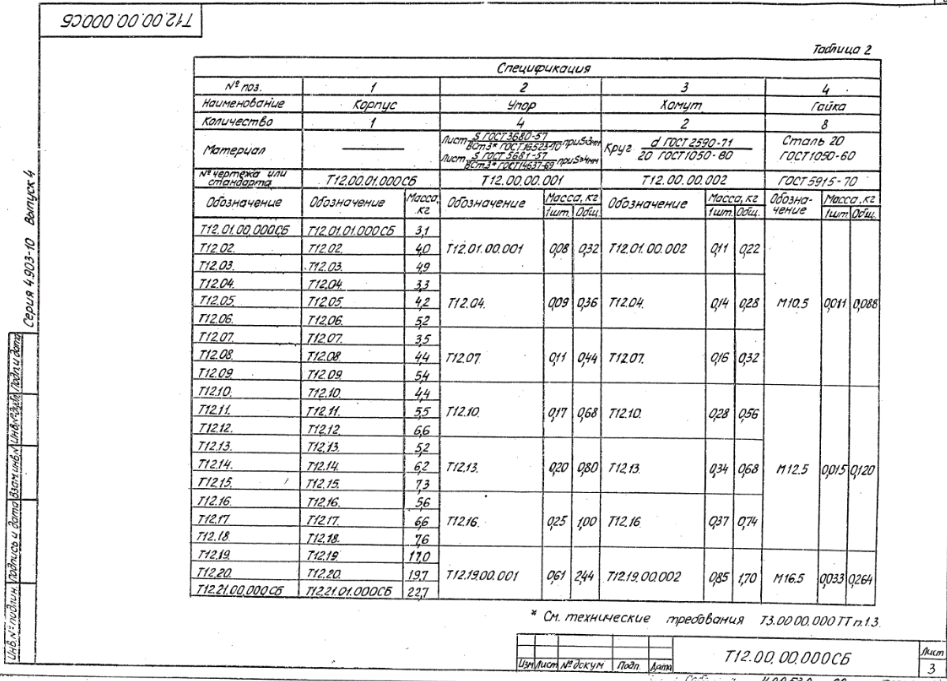 Т12.00.00.000СБ
Таблица 2
Спецификация
№ поз. 1 2 3 4
Наименование Корпус Упор Хомут Гайка
Количество 1 4 2 8
Материал Лист S ГОСТ 3680-57 / ВСт3* ГОСТ 16523-70 при S<4мм Круг d ГОСТ 2590-71 / 20 ГОСТ 1050-60 Сталь 20
Лист S ГОСТ 5681-57 / ВСт3* ГОСТ 14637-69 при S≥4мм ГОСТ 1050-60
№ чертежа или стандарта Т12.00.01.000СБ Т12.00.00.001 Т12.00.00.002 ГОСТ 5915-70
Обозначение Обозначение Масса, кг Обозначение Масса, кг Обозначение Масса, кг Обозна-чение Масса, кг
1шт. Общ. 1шт. Общ. 1шт. Общ.
Т12.01.00.000СБ Т12.01.01.000СБ 3,1
Т12.02. Т12.02. 4,0 Т12.01.00.001 0,08 0,32 Т12.01.00.002 0,11 0,22
Т12.03. Т12.03. 4,9
Т12.04. Т12.04. 3,3
Т12.05. Т12.05. 4,2 Т12.04. 0,09 0,36 Т12.04. 0,14 0,28 М10.5 0,011 0,088
Т12.06. Т12.06. 5,2
Т12.07. Т12.07. 3,5
Т12.08. Т12.08. 4,4 Т12.07. 0,11 0,44 Т12.07. 0,16 0,32
Т12.09. Т12.09. 5,4
Т12.10. Т12.10. 4,4
Т12.11. Т12.11. 5,5 Т12.10. 0,17 0,68 Т12.10. 0,28 0,56
Т12.12. Т12.12. 6,6
Т12.13. Т12.13. 5,2
Т12.14. Т12.14. 6,2 Т12.13. 0,20 0,80 Т12.13. 0,34 0,68 М12.5 0,015 0,120
Т12.15. Т12.15. 7,3
Т12.16. Т12.16. 5,6
Т12.17. Т12.17. 6,6 Т12.16. 0,25 1,00 Т12.16 0,37 0,74
Т12.18. Т12.18. 7,6
Т12.19. Т12.19 17,0
Т12.20. Т12.20. 19,7 Т12.19.00.001 0,61 2,44 Т12.19.00.002 0,85 1,70 М16.5 0,033 0,264
Т12.21.00.000СБ Т12.21.01.000СБ 22,7
* См. технические требования Т3.00.00.000ТТ п.1.3.
Изм Лист № докум Подп. Дата
Т12.00.00.000СБ
Лист
3
Серия 4.903-10 Выпуск 4
Инв.№ подлин. Подпись и дата Взам.инв.№ Инв.№ дубл. Подп. и дата